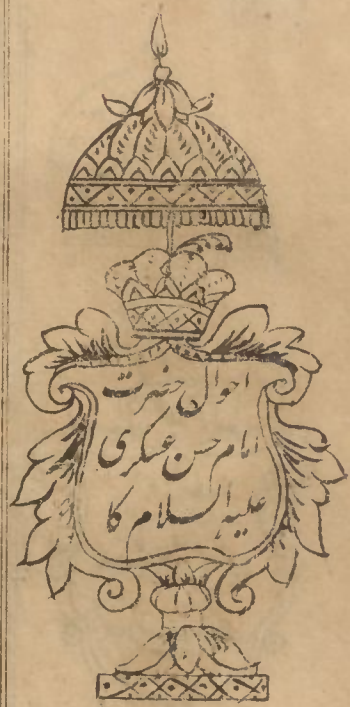 احوال حضرت
امام حسن عسکری
علیہ السلام کا